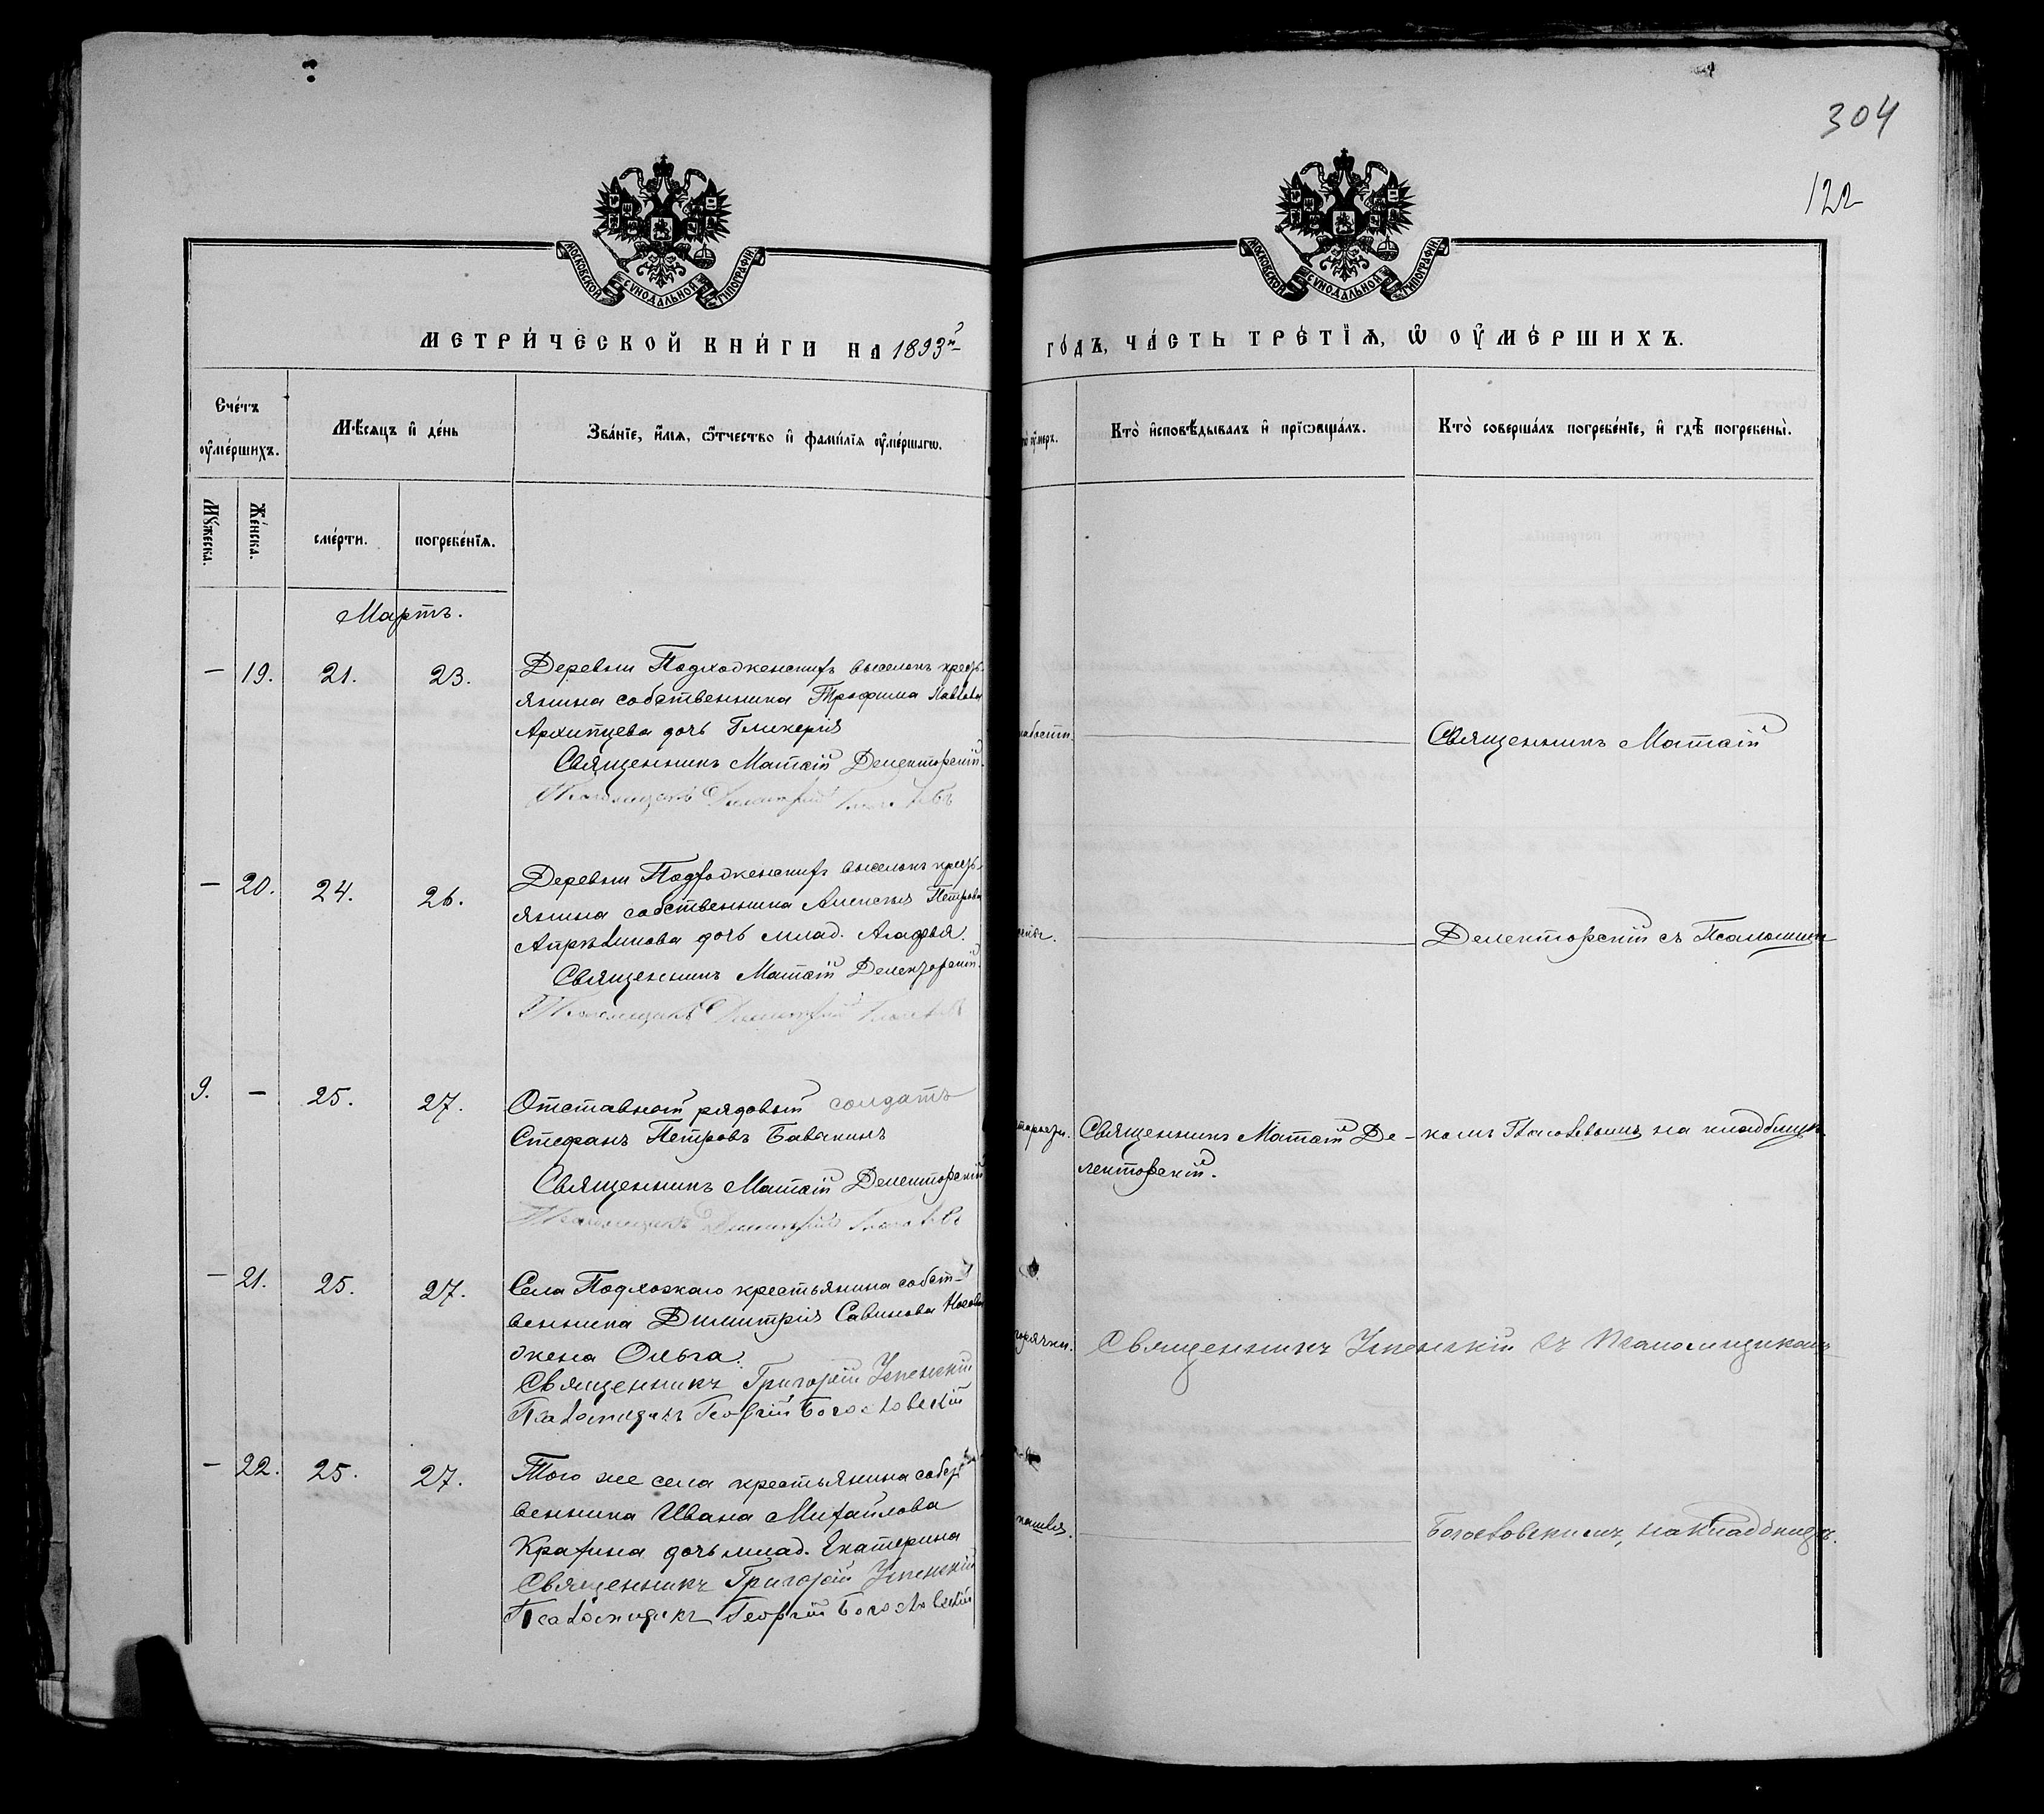 304
122
МОСКОВСКОЙ СѴНОДАЛЬНОЙ ТИПОГРАФІИ
МОСКОВСКОЙ СѴНОДАЛЬНОЙ ТИПОГРАФІИ
МЕТРИ́ЧЕСКОЙ КНИ́ГИ НА 1893й
ГО́ДЪ, ЧА́СТЬ ТРЕ́ТЇѦ, Ѡ҆ ОУ҆МЕ́РШИХЪ.
Сче́тъ
оу҆ме́ршихъ.
Мѣ́сѧцъ и҆ де́нь
Зва́нїе, и҆́мѧ, ѻ҆́тчество и҆ фами́лїѧ оу҆ме́ршагѡ.
оу҆́меръ.
Кто̀ и҆сповѣ́дывалъ и҆ прїѡбща́лъ.
Кто̀ соверша́лъ погребе́нїе, и҆ гдѣ̀ погребены̀.
Мꙋ́жеска.
Же́нска.
сме́рти.
погребе́нїѧ.
Мартъ.
— 19. 21. 23. Деревни выселокъ кресть-
янина собственника Трофима
Архипцева дочь Гликерія
Священникъ Матѳій Делекторскій.
Псаломщикъ Димитрій
Священникъ Матѳій
— 20. 24. 26. Деревни выселокъ кресть-
янина собственника Алексѣя Петрова
дочь млад. Агафья.
Священникъ Матѳій Делекторскій.
Псаломщикъ Димитрій
Делекторскій съ Псаломщи-
9. — 25. 27. Отставной рядовый солдатъ
Стефанъ Петровъ Бавыкинъ
Священникъ Матѳій Делекторскій
Псаломщикъ Димитрій
Священникъ Матѳій Де-
лекторскій.
комъ на кладбищѣ.
— 21. 25. 27. Села Подлознаго крестьянина собст-
венника Димитрія Савинова
жена Ольга.
Священникъ Григорій Успенскій
Псаломщикъ Георгій Богословскій
горячки.
Священникъ Успенскій съ Псаломщикомъ
— 22. 25. 27. Того же села крестьянина собст
венника Ивана Михайлова
дочь млад. Екатерина
Священникъ Григорій Успенскій
Псаломщикъ Георгій Богословскій
кашля.
Богословскимъ, на кладбищѣ.